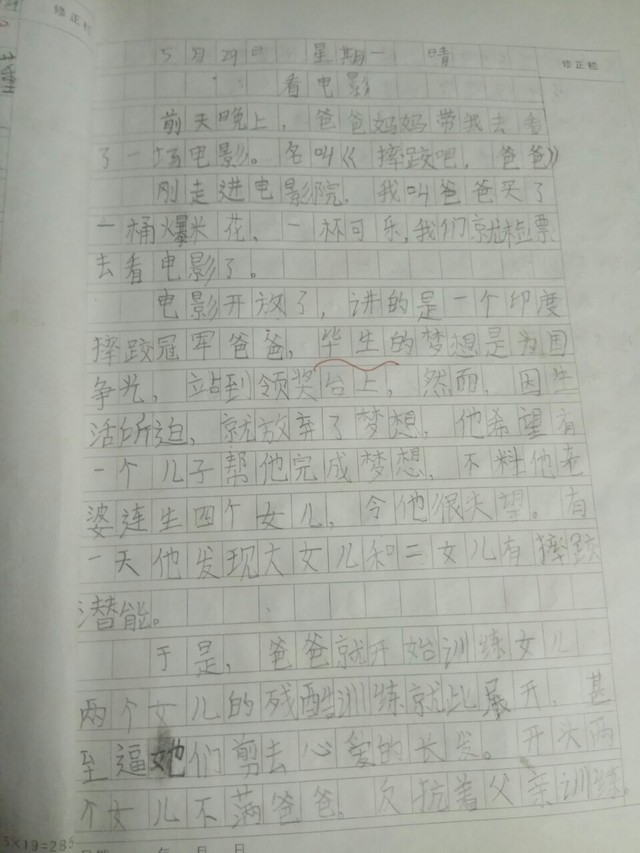 修正栏
5月29日 星期一 晴
修正栏
看电影
前天晚上，爸爸妈妈带我去看
了一场电影。名叫《摔跤吧，爸爸》
刚走进电影院，我叫爸爸买了
一桶爆米花，一杯可乐，我们就检票
去看电影了。
电影开放了，讲的是一个印度
摔跤冠军爸爸，毕生的梦想是为国
争光，站到领奖台上，然而，因生
活所迫，就放弃了梦想，他希望有
一个儿子帮他完成梦想，不料他老
婆连生四个女儿，令他很失望。有
一天他发现大女儿和二女儿有摔跤
潜能。
于是，爸爸就开始训练女儿
两个女儿的残酷训练就此展开，甚
至逼她们剪去心爱的长发。开头两
个女儿不满爸爸，欠抗着父亲训练。
5×19=285
年 月 日